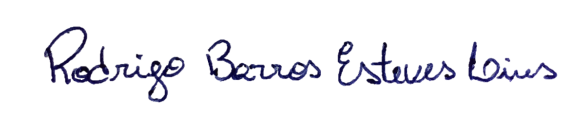 Rodrigo Barros Esteves